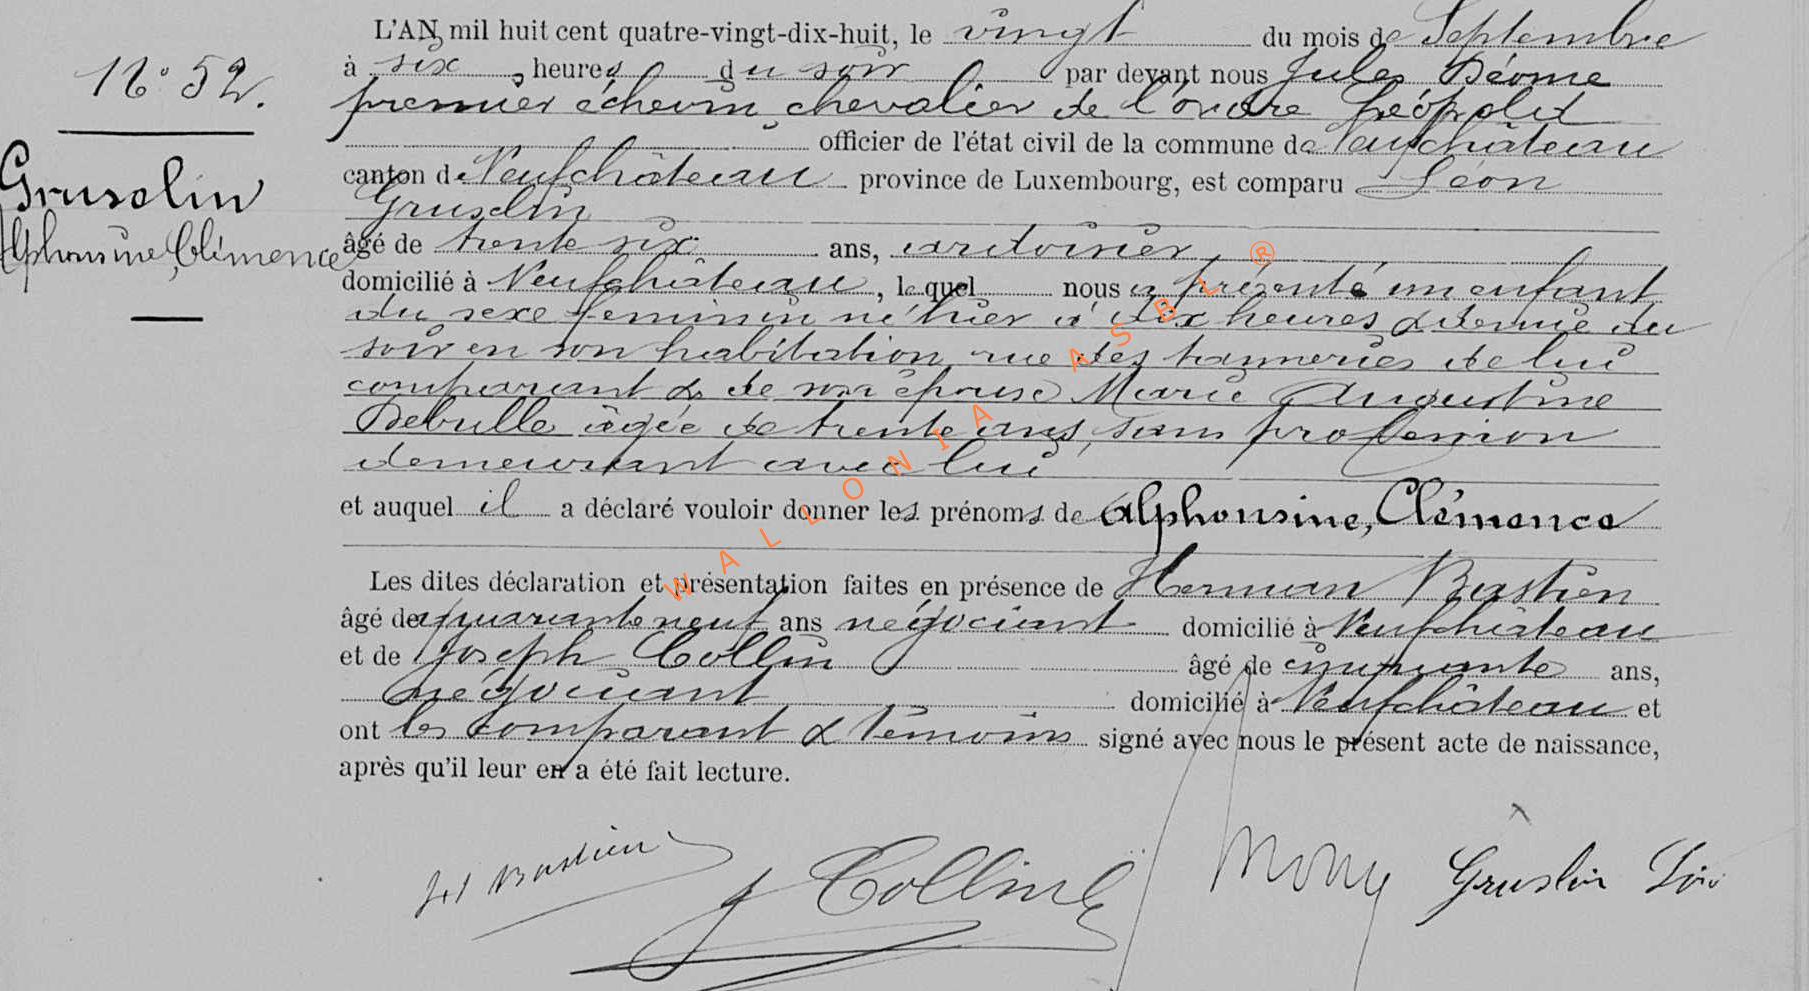 N° 52.
Gruselin
Alphonsine, Clémence
L'AN mil huit cent quatre-vingt-dix-huit, le vingt du mois de Septembre
à six heures du soir par devant nous Jules
premier échevin, chevalier de l'ordre Léopold
officier de l'état civil de la commune de Neufchâteau
canton de Neufchâteau province de Luxembourg, est comparu Léon
Gruselin
âgé de trente six ans, ardoisier
domicilié à Neufchâteau, lequel nous a présenté un enfant
du sexe feminin né hier à dix heures & demie du
soir en son habitation rue des tanneries de lui
comparant & de son épouse Marie Augustine
Debulle âgée de trente ans, sans profession
demeurant avec lui
et auquel il a déclaré vouloir donner les prénoms de Alphonsine, Clémence
Les dites déclaration et présentation faites en présence de Herman Bastien
âgé de quarante neuf ans négociant domicilié à Neufchâteau
et de Joseph Collin âgé de cinquante ans,
négociant domicilié à Neufchâteau et
ont les comparant & témoins signé avec nous le présent acte de naissance,
après qu'il leur en a été fait lecture.
H Bastien J Collin Gruslin
WALLONIA ASBL ®